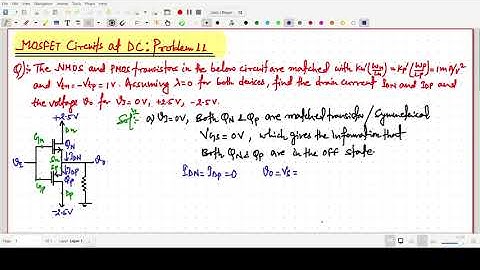 MOSFET Circuits at DC: Problem 11
Q):- The NMOS and PMOS transistors in the below circuit are matched with Kn'(Wn/Ln) = Kp'(Wp/Lp) = 1mA/V²
and Vtn = -Vtp = 1V. Assuming λ=0 for both devices, find the drain current IDN and IDP and
the voltage Vo for VI = 0V, +2.5V, -2.5V.
Sol:- a) VI = 0V, Both QN & QP are matched transistor / Symmetrical
VGS = 0V, which gives the information that
Both QN & QP are in the off state.
IDN = IDP = 0 Vo = VS =
+2.5V
Dn
Gn
QN
Sn
IDN
VI
Vo
Sp
IDP
QP
Gp
Dp
-2.5V